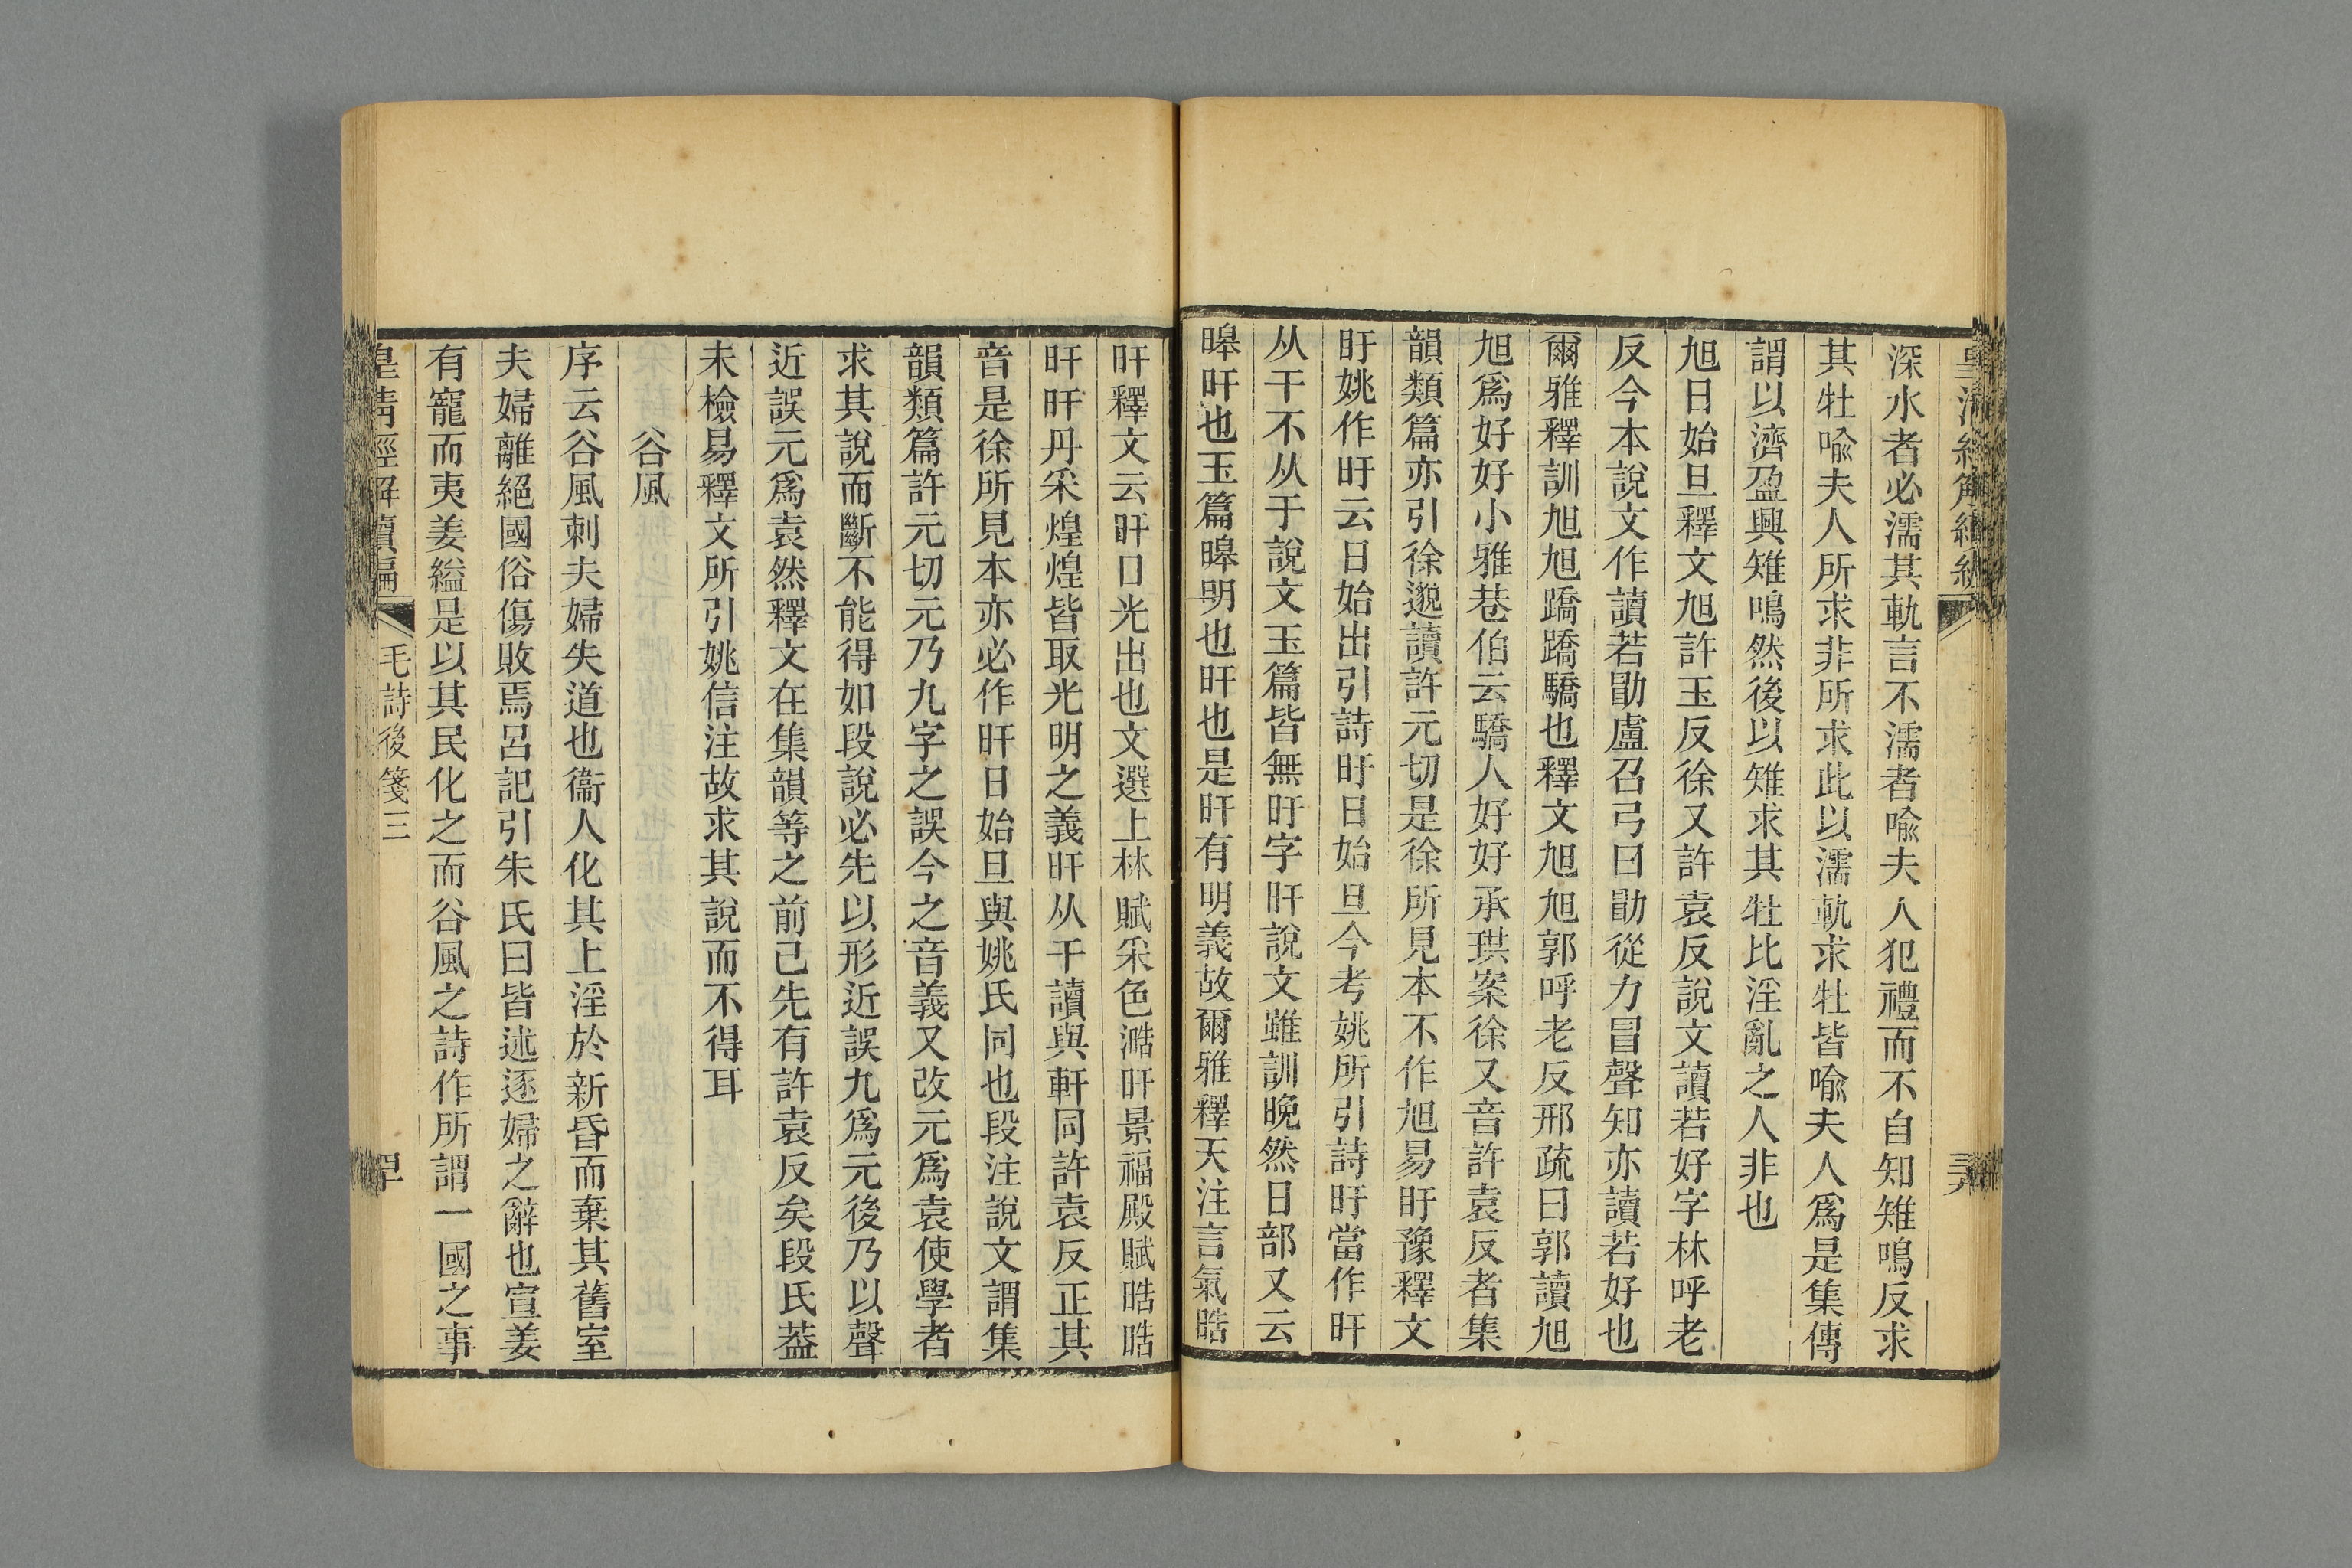 深水者必濡其軌言不濡者喩夫人犯禮而不自知雉鳴反求
其牡喩夫人所求非所求此以濡軌求牡皆喩夫人爲是集傳
謂以濟盈興雉鳴然後以雉求其牡比淫亂之人非也
旭日始旦釋文旭許玉反徐又許袁反說文讀若好字林呼老
反今本說文作讀若勖盧召弓曰勖從力冒聲知亦讀若好也
爾雅釋訓旭旭蹻蹻驕也釋文旭旭郭呼老反邢疏曰郭讀旭
旭爲好好小雅巷伯云驕人好好承珙案徐又音許袁反者集
韻類篇亦引徐邈讀許元切是徐所見本不作旭易盱豫釋文
盱姚作旴云日始出引詩旴日始旦今考姚所引詩旴當作旰
从干不从于說文玉篇皆無旴字旰說文雖訓晚然日部又云
暤旰也玉篇暤明也旰也是旰有明義故爾雅釋天注言氣晧
旰釋文云旰日光出也文選上林賦采色澔旰景福殿賦晧晧
旰旰丹采煌煌皆取光明之義旰从干讀與軒同許袁反正其
音是徐所見本亦必作旰日始旦與姚氏同也段注說文謂集
韻類篇許元切元乃九字之誤今之音義又改元爲袁使學者
求其說而斷不能得如段說必先以形近誤九爲元後乃以聲
近誤元爲袁然釋文在集韻等之前己先有許袁反矣段氏葢
未檢易釋文所引姚信注故求其說而不得耳
谷風
序云谷風刺夫婦失道也衞人化其上淫於新昏而棄其舊室
夫婦離絕國俗傷敗焉呂記引朱氏曰皆述逐婦之辭也宣姜
有寵而夷姜縊是以其民化之而谷風之詩作所謂一國之事
皇清經解續編
毛詩後箋三